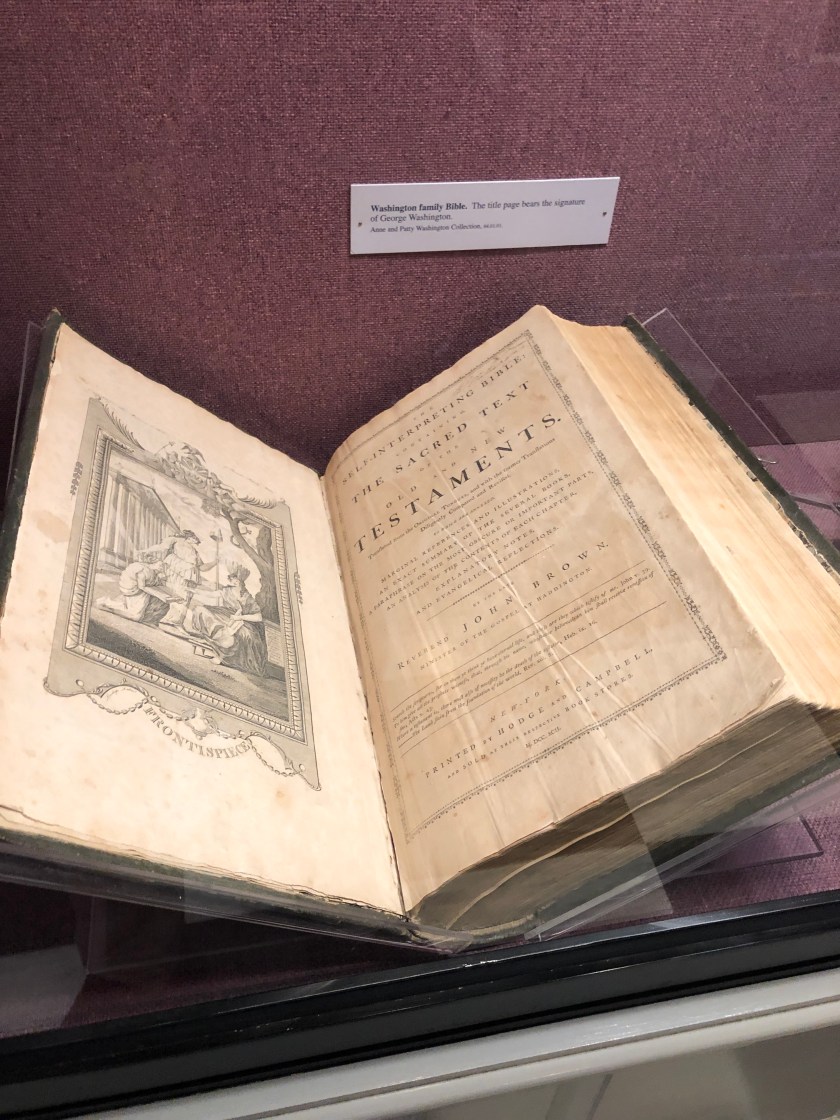 Washington family Bible. The title page bears the signature
of George Washington.
Anne and Patty Washington Collection,
FRONTISPIECE
SELF-INTERPRETING BIBLE:
THE SACRED TEXT
OF THE
OLD AND NEW
TESTAMENTS.
Translated from the Original Tongues, and with the former Translations
Diligently Compared and Revised.
MARGINAL REFERENCES AND ILLUSTRATIONS,
AN EXACT SUMMARY OF THE SEVERAL BOOKS,
A PARAPHRASE ON THE MOST OBSCURE OR IMPORTANT PARTS,
AN ANALYSIS OF THE CONTENTS OF EACH CHAPTER,
EXPLANATORY NOTES,
AND EVANGELICAL REFLECTIONS.
BY THE
REVEREND JOHN BROWN,
MINISTER OF THE GOSPEL AT HADDINGTON.
NEW-YORK:
PRINTED BY HODGE AND CAMPBELL,
AND SOLD AT THEIR RESPECTIVE BOOK STORES.